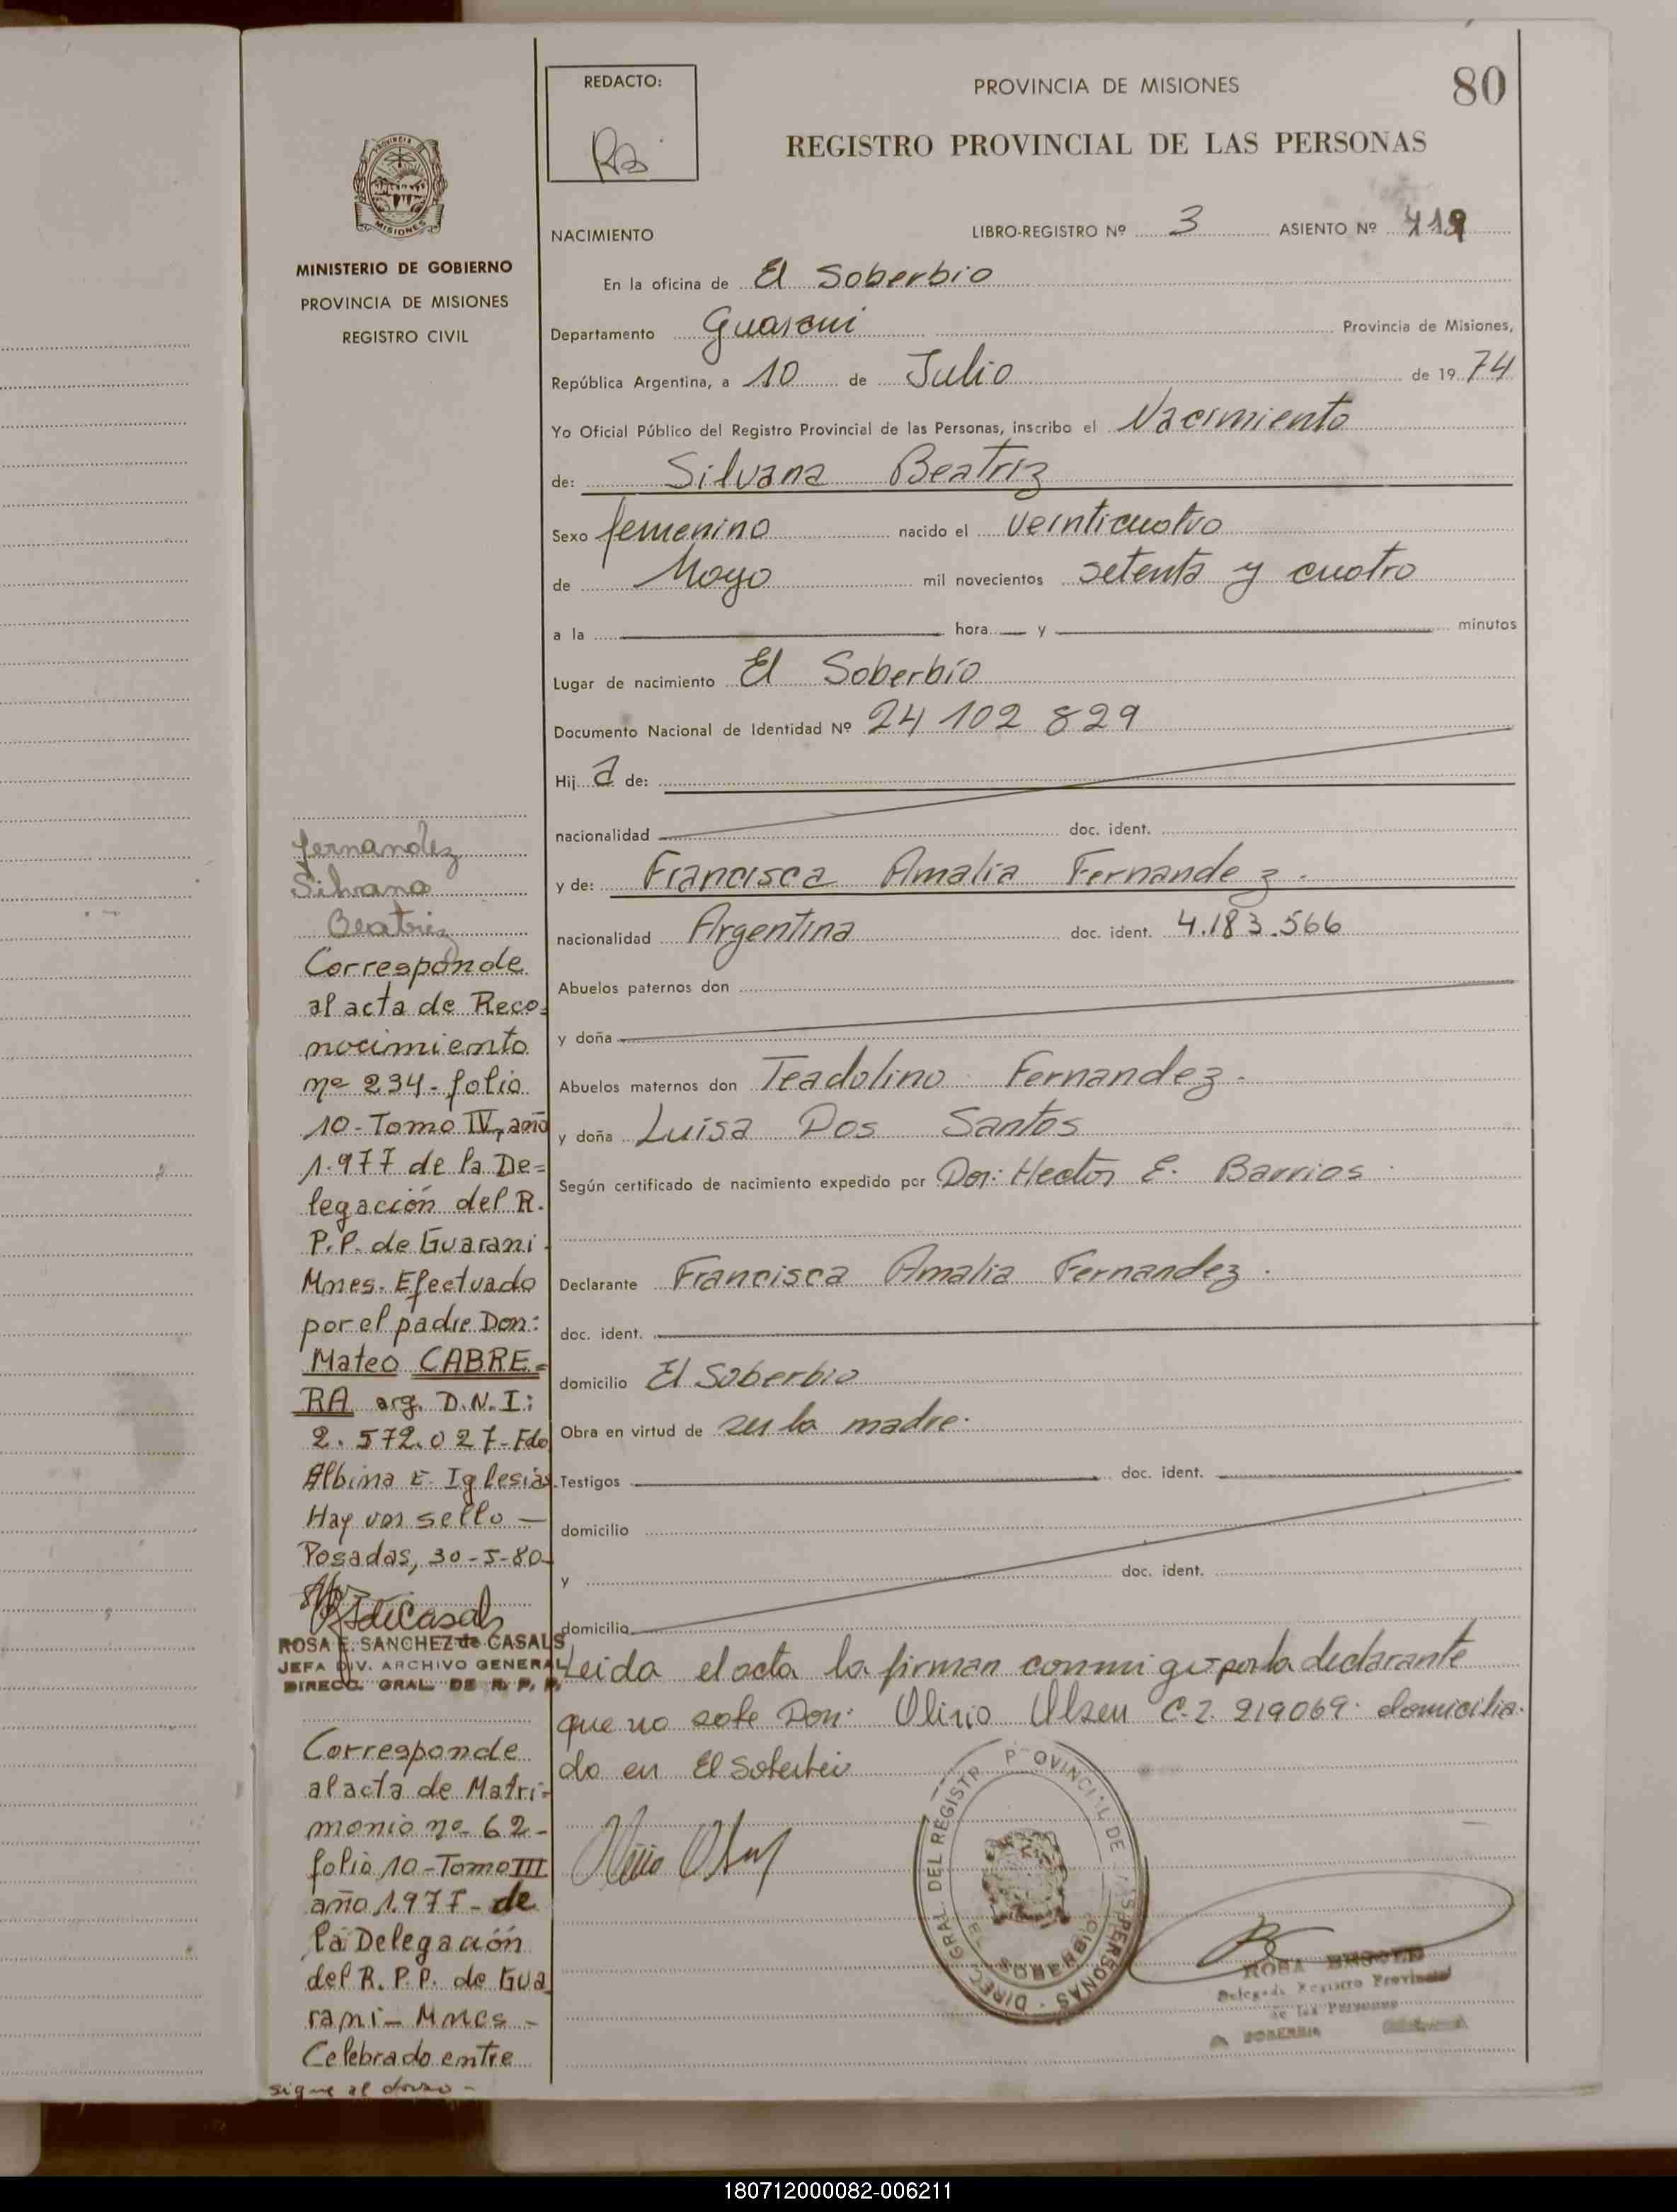 80
REDACTO:
PROVINCIA DE MISIONES
REGISTRO PROVINCIAL DE LAS PERSONAS
PROVINCIA DE
MISIONES
MINISTERIO DE GOBIERNO
PROVINCIA DE MISIONES
REGISTRO CIVIL
NACIMIENTO LIBRO-REGISTRO Nº 3 ASIENTO Nº 419
En la oficina de El Soberbio
Departamento Guarani Provincia de Misiones,
República Argentina, a 10 de Julio de 1974
Yo Oficial Público del Registro Provincial de las Personas, inscribo el Nacimiento
de: Silvana Beatriz
Sexo femenino nacido el veinticuatro
de Mayo mil novecientos setenta y cuatro
a la hora y minutos
Lugar de nacimiento El Soberbio
Documento Nacional de Identidad Nº 24 102 829
Hij a de:
nacionalidad doc. ident.
y de: Francisca Amalia Fernandez.
nacionalidad Argentina doc. ident. 4.183.566
Abuelos paternos don
y doña
Abuelos maternos don Teadolino Fernandez.
y doña Luisa Dos Santos
Según certificado de nacimiento expedido por Don: Hector E. Barrios
Declarante Francisca Amalia Fernandez.
doc. ident.
domicilio El Soberbio
Obra en virtud de ser la madre.
Testigos doc. ident.
domicilio
y doc. ident.
domicilio
Leida el acta la firman conmigo por la declarante
que no sabe Don: Olirio Olsen C.I. 219069. domicilia-
do en El Soberbio
Fernandez
Silvana
Beatriz
Corresponde
al acta de Reco=
nocimiento
nº 234-folio
10-Tomo IV, año
1.977 de la De=
legación del R.
P.P. de Guarani
Mnes. Efectuado
por el padre Don:
Mateo CABRE=
RA arg. D.N.I:
2.572.027-Fdo
Albina E. Iglesias.
Hay un sello —
Posadas, 30-5-80
ROSA E. SANCHEZ de CASALS
JEFA DIV. ARCHIVO GENERAL
DIRECC. GRAL. DE R. P. P.
Corresponde
al acta de Matri=
monio nº 62-
folio 10-Tomo III
año 1.977-de
la Delegación
del R.P.P. de Gua
rani-Mnes-
Celebrado entre
sigue al dorso-
DIREC. GRAL. DEL REGISTR PROVINCIAL DE LAS PERSONAS
EL SOBERBIO
ROSA
Delegada Registro Provincial
de las Personas
SOBERBIA
180712000082-006211